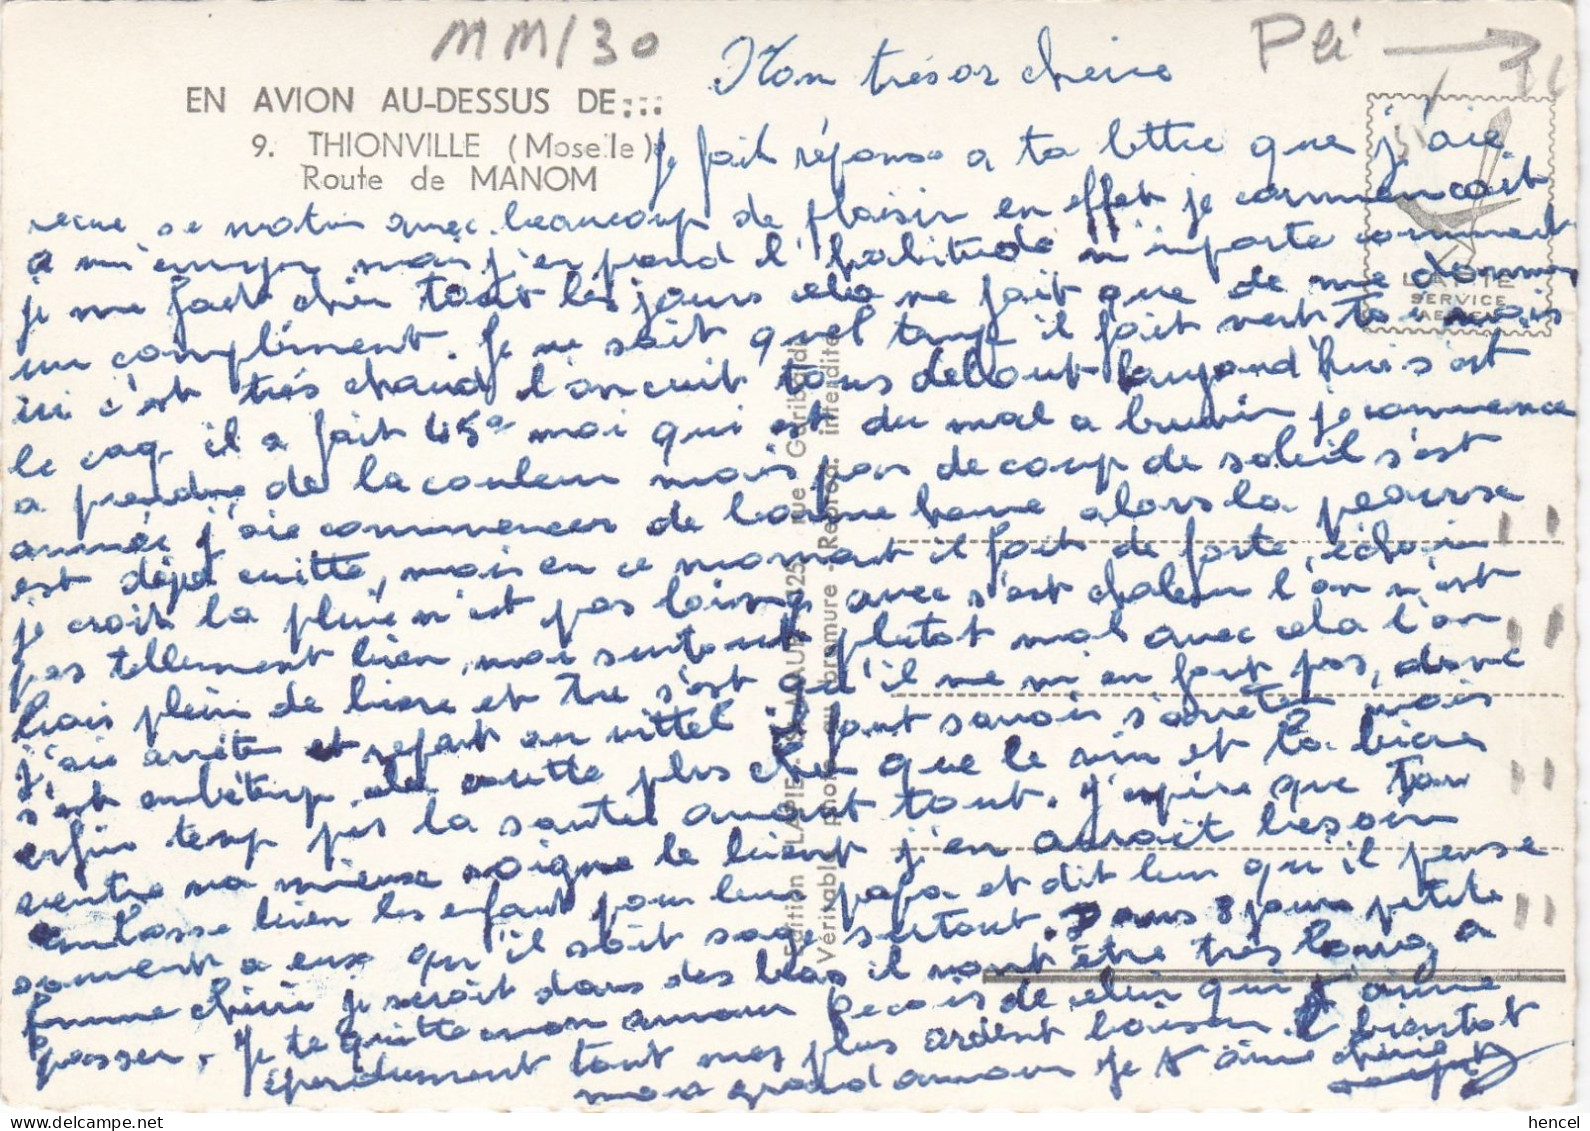 MM/30
Pli →
EN AVION AU-DESSUS DE...
9. THIONVILLE (Moselle)
Route de MANOM
LAPIE
SERVICE
AERIEN
Edition LAPIE - ST-MAUR - 125, rue Garibaldi
Véritable photo au bromure - Reprod. interdite
Mon trésor cherie
Je fait réponse a ta lettre que j'aie
recue se matin avec beaucoup de plaisir en effet je commencait
a m'ennuyer mais j'en prend l'habitude n'inporte comment
je me fait chier tout les jours cela ne fait que de me donner
un complément. Je ne sait quel temps il fait vert toi mais
ici c'est très chaud l'on cuit tous debout aujourd'hui s'est
le caq il a fait 45° moi qui est du mal a brunir je commence
a prendre de la couleur mais pas de coup de soleil s'est
année j'aie commencer de bonne heure alors la peausse
est déja cuitte, mais en ce moment il fait de forte éclair
je croit la pluie n'est pas loing avec s'est chaleur l'on n'est
pas tellement bien, moi surtout plutot mal avec cela l'on
bois plein de biere et s'est qu'il ne m'en faut pas, donc
j'aie arrêter et repart au vittel il faut savoir s'arreter mais
s'est embêtant cela coutte plus cher que le vin et la biere
enfin temp pis la santer avant tout. J'espère que ton
ventre va mieux soigne le bient j'en auroit besoin
embrasse bien les enfant pour leur papa et dit leur qu'il pense
souvent a eux qu'il soit sage surtout. Dans 8 jours petite
femme chérie je seroit dans des bras il vont être très long a
passer. Je te quitte mon amour recois de celui qui t'aime
éperdument tout mes plus ardent baiser. A bientot
mon grand amour je t'aime chérie